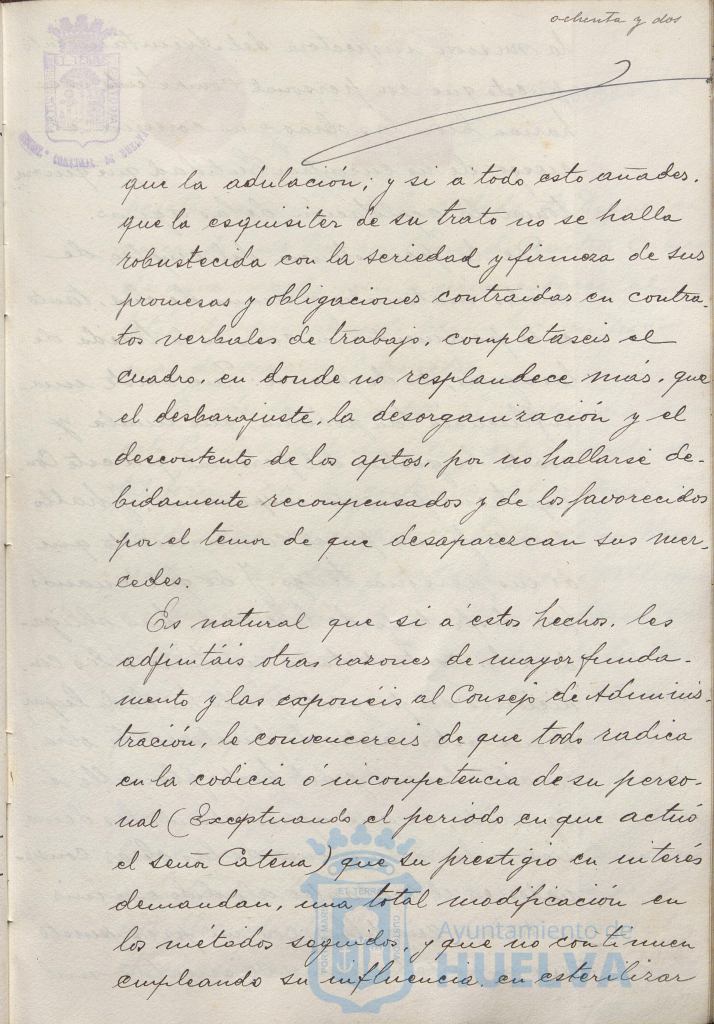 ochenta y dos
que la adulación; y si a todo esto añades.
que la esquisitez de su trato no se halla
robustecida con la seriedad y firmeza de sus
promesas y obligaciones contraidas en contra-
tos verbales de trabajo, completaseis el
cuadro, en donde no resplandece más, que
el desbarajuste, la desorganización y el
descontento de los aptos, por no hallarse de-
bidamente recompensados y de los favorecidos
por el temor de que desaparezcan sus mer-
cedes.
Es natural que si á estos hechos, les
adjuntáis otras razones de mayor funda-
mento y las exponéis al Consejo de Adminis-
tración, le convencereis de que todo radica
en la codicia ó incompetencia de su perso-
nal (Exceptuando el periodo en que actuó
el señor Catena) que su prestigio en interés
demandan, una total modificación en
los métodos seguidos, y que no continuen
empleando su influencia, en esterilizar
EL TERRAE
Ayuntamiento de
HUELVA